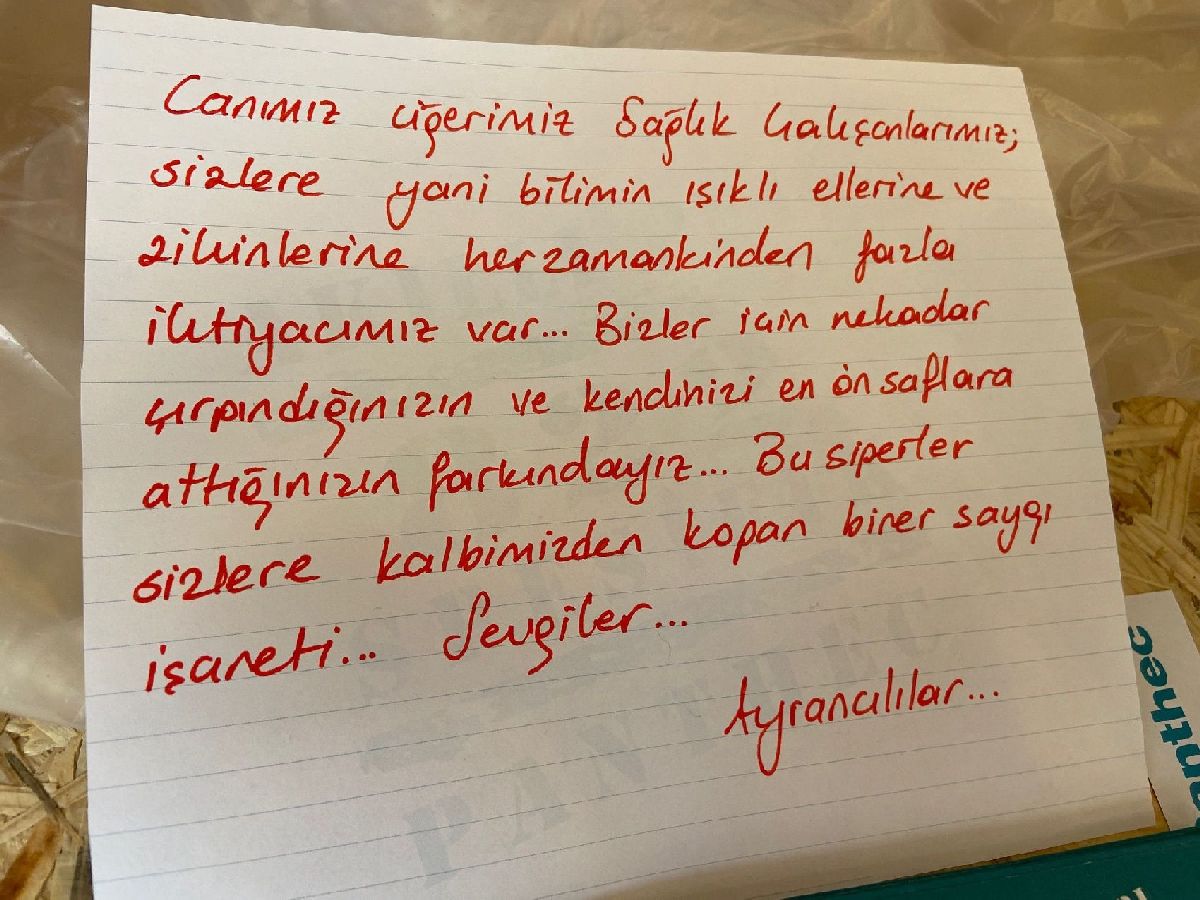 Canımız ciğerimiz Sağlık Çalışanlarımız;
sizlere yani bilimin ışıklı ellerine ve
zihinlerine herzamankinden fazla
ihtiyacımız var... Bizler için nekadar
çırpındığınızın ve kendinizi en ön saflara
attığınızın farkındayız... Bu siperler
sizlere kalbimizden kopan birer saygı
işareti... Sevgiler...
Ayrancılılar...
anthec